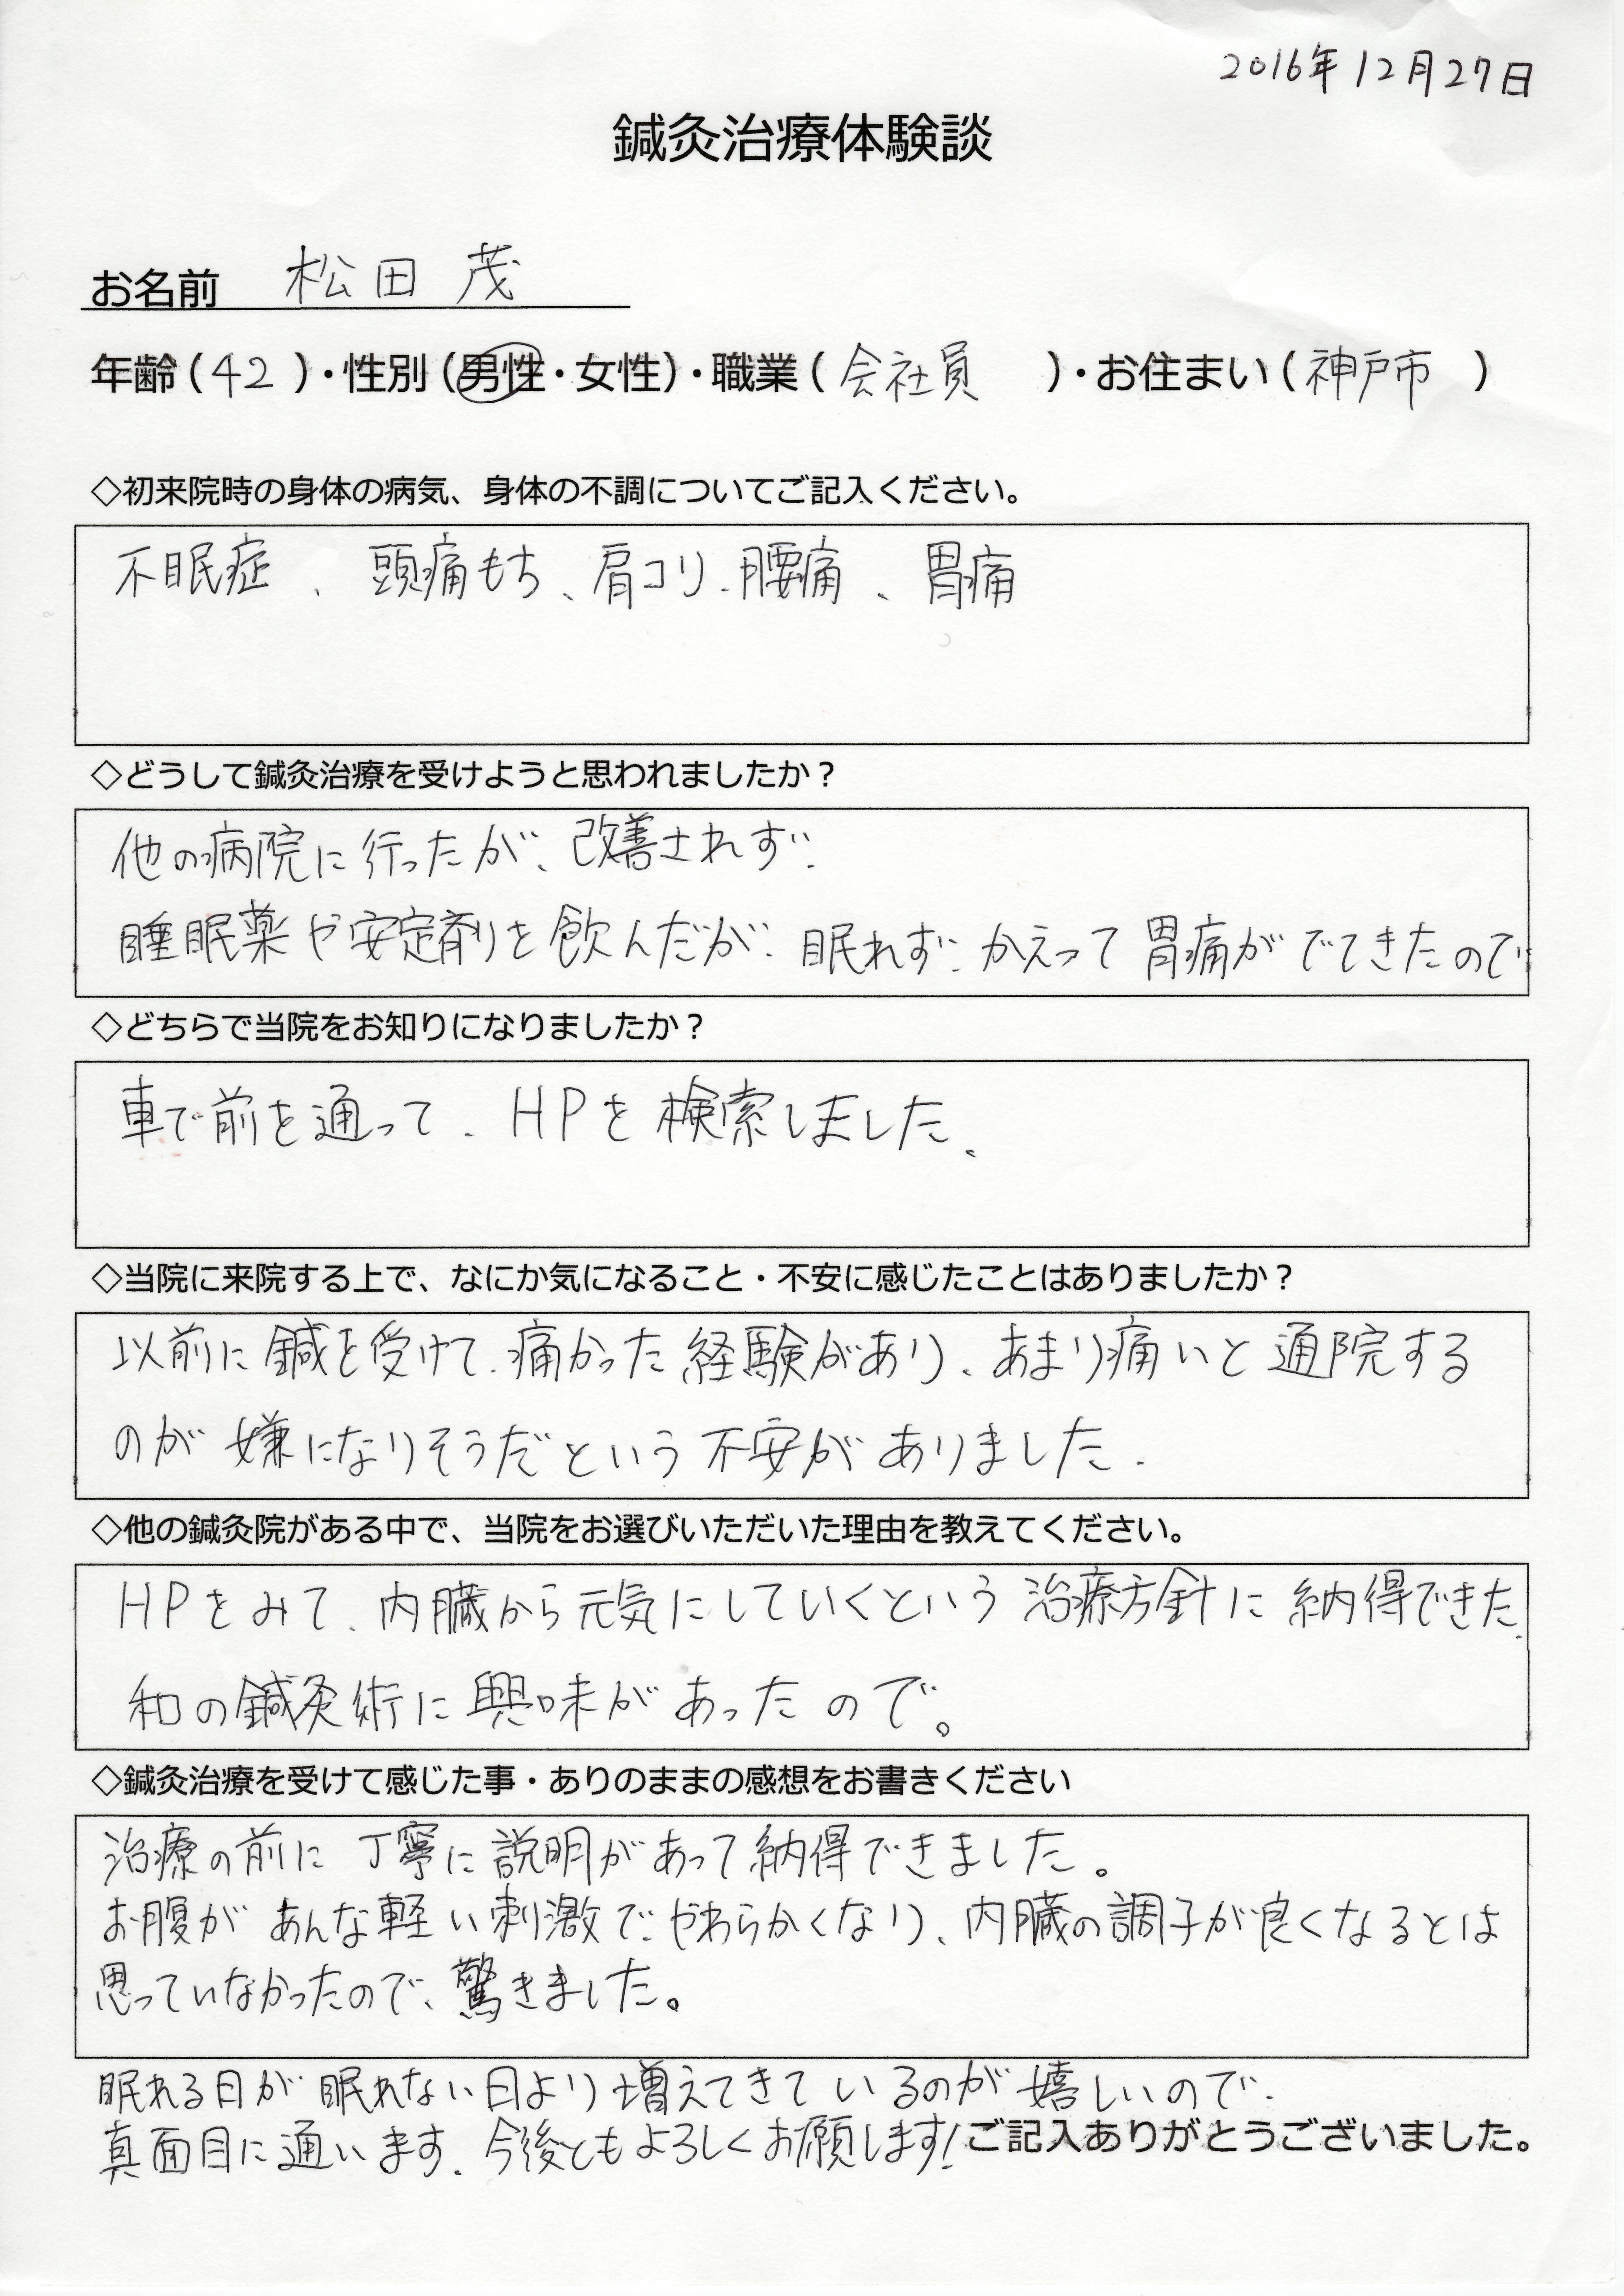 2016年12月27日
鍼灸治療体験談
お名前 松田 茂
年齢(42)・性別(男性・女性)・職業(会社員)・お住まい(神戸市)
◇初来院時の身体の病気、身体の不調についてご記入ください。
不眠症、頭痛もち、肩コリ、腰痛、胃痛
◇どうして鍼灸治療を受けようと思われましたか？
他の病院に行ったが、改善されず、
睡眠薬や安定剤を飲んだが、眠れず、かえって胃痛がでてきたので
◇どちらで当院をお知りになりましたか？
車で前を通って、HPを検索しました、
◇当院に来院する上で、なにか気になること・不安に感じたことはありましたか？
以前に鍼を受けて、痛かった経験があり、あまり痛いと通院する
のが嫌になりそうだという不安がありました.
◇他の鍼灸院がある中で、当院をお選びいただいた理由を教えてください。
HPをみて、内臓から元気にしていくという治療方針に納得できた.
和の鍼灸術に興味があったので。
◇鍼灸治療を受けて感じた事・ありのままの感想をお書きください
治療の前に丁寧に説明があって納得できました。
お腹があんな軽い刺激でやわらかくなり、内臓の調子が良くなるとは
思っていなかったので、驚きました。
眠れる日が眠れない日より増えてきているのが嬉しいので.
真面目に通います. 今後ともよろしくお願します! ご記入ありがとうございました。